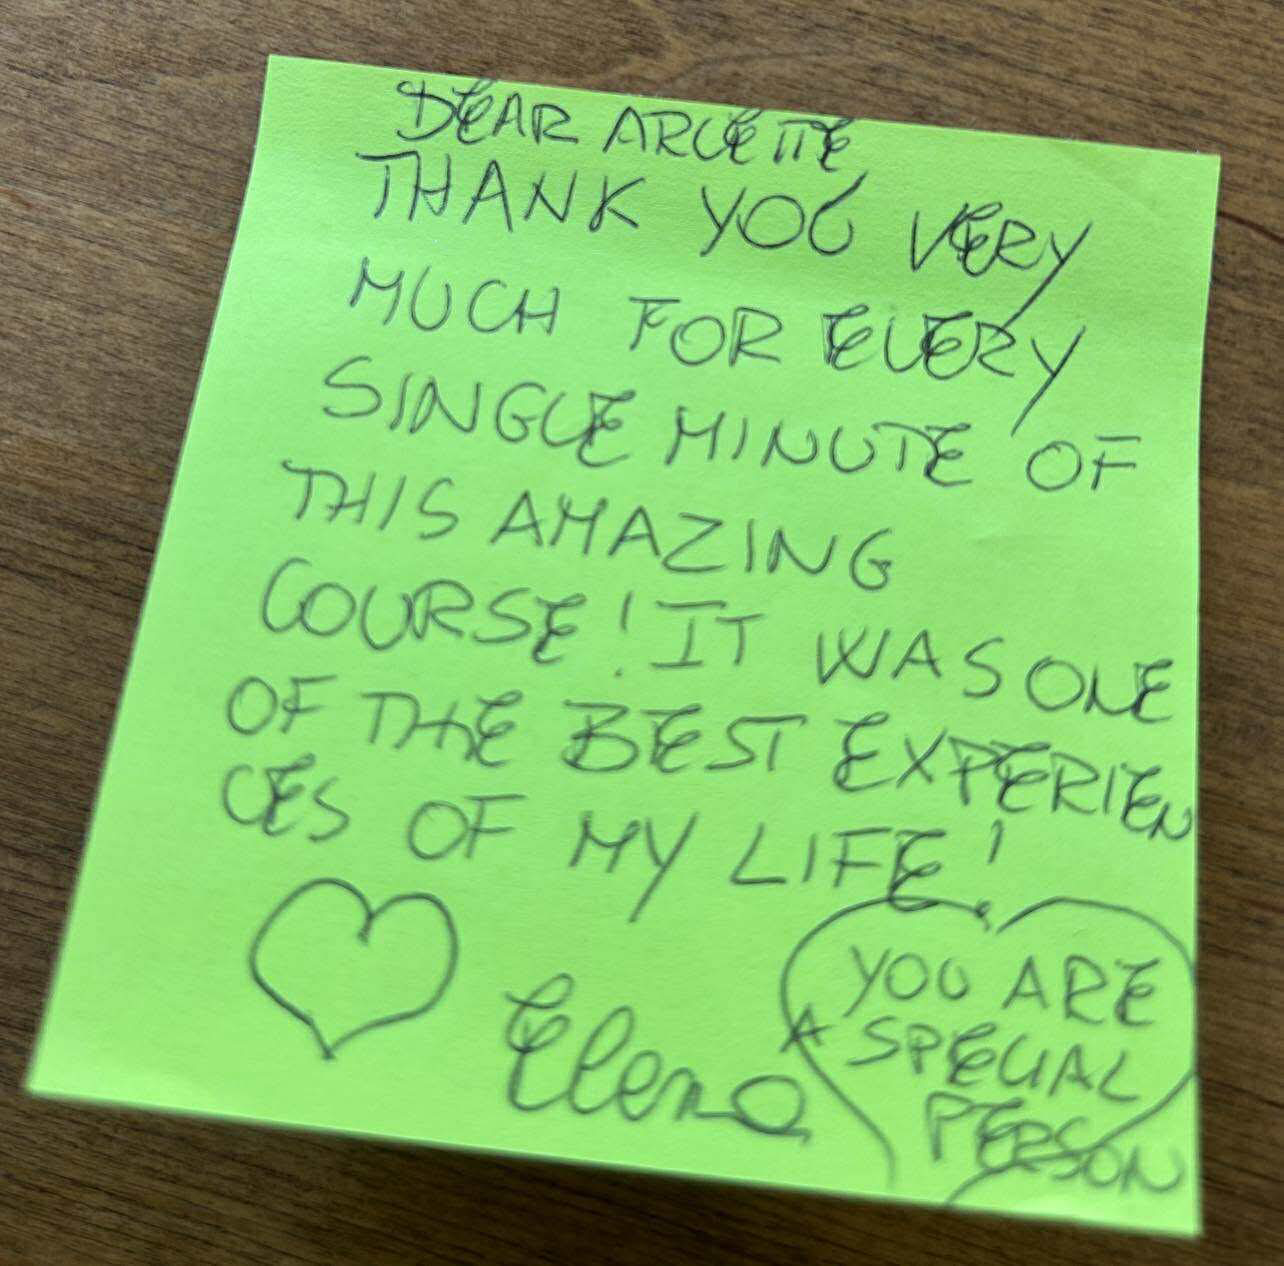 DEAR ARLETTE
THANK YOU VERY
MUCH FOR EVERY
SINGLE MINUTE OF
THIS AMAZING
COURSE! IT WAS ONE
OF THE BEST EXPERIEN
CES OF MY LIFE!
Elena
YOU ARE
A SPECIAL
PERSON